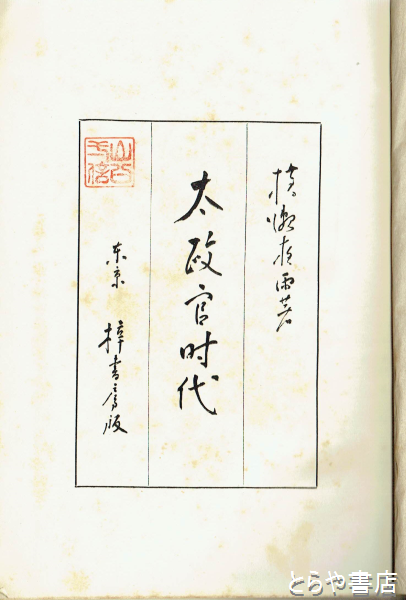 横瀬夜雨著
太政官时代
东京 梓書房版
とらや書店